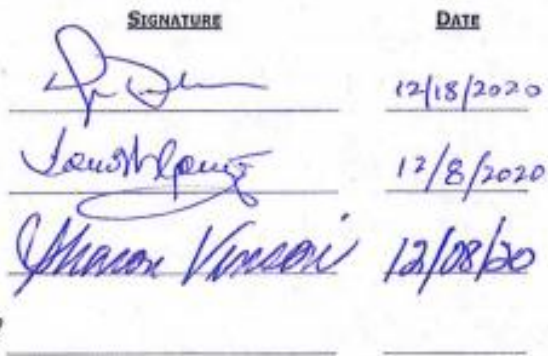 SIGNATURE DATE
12/18/2020
12/8/2020
Sharon Vinson 12/08/20